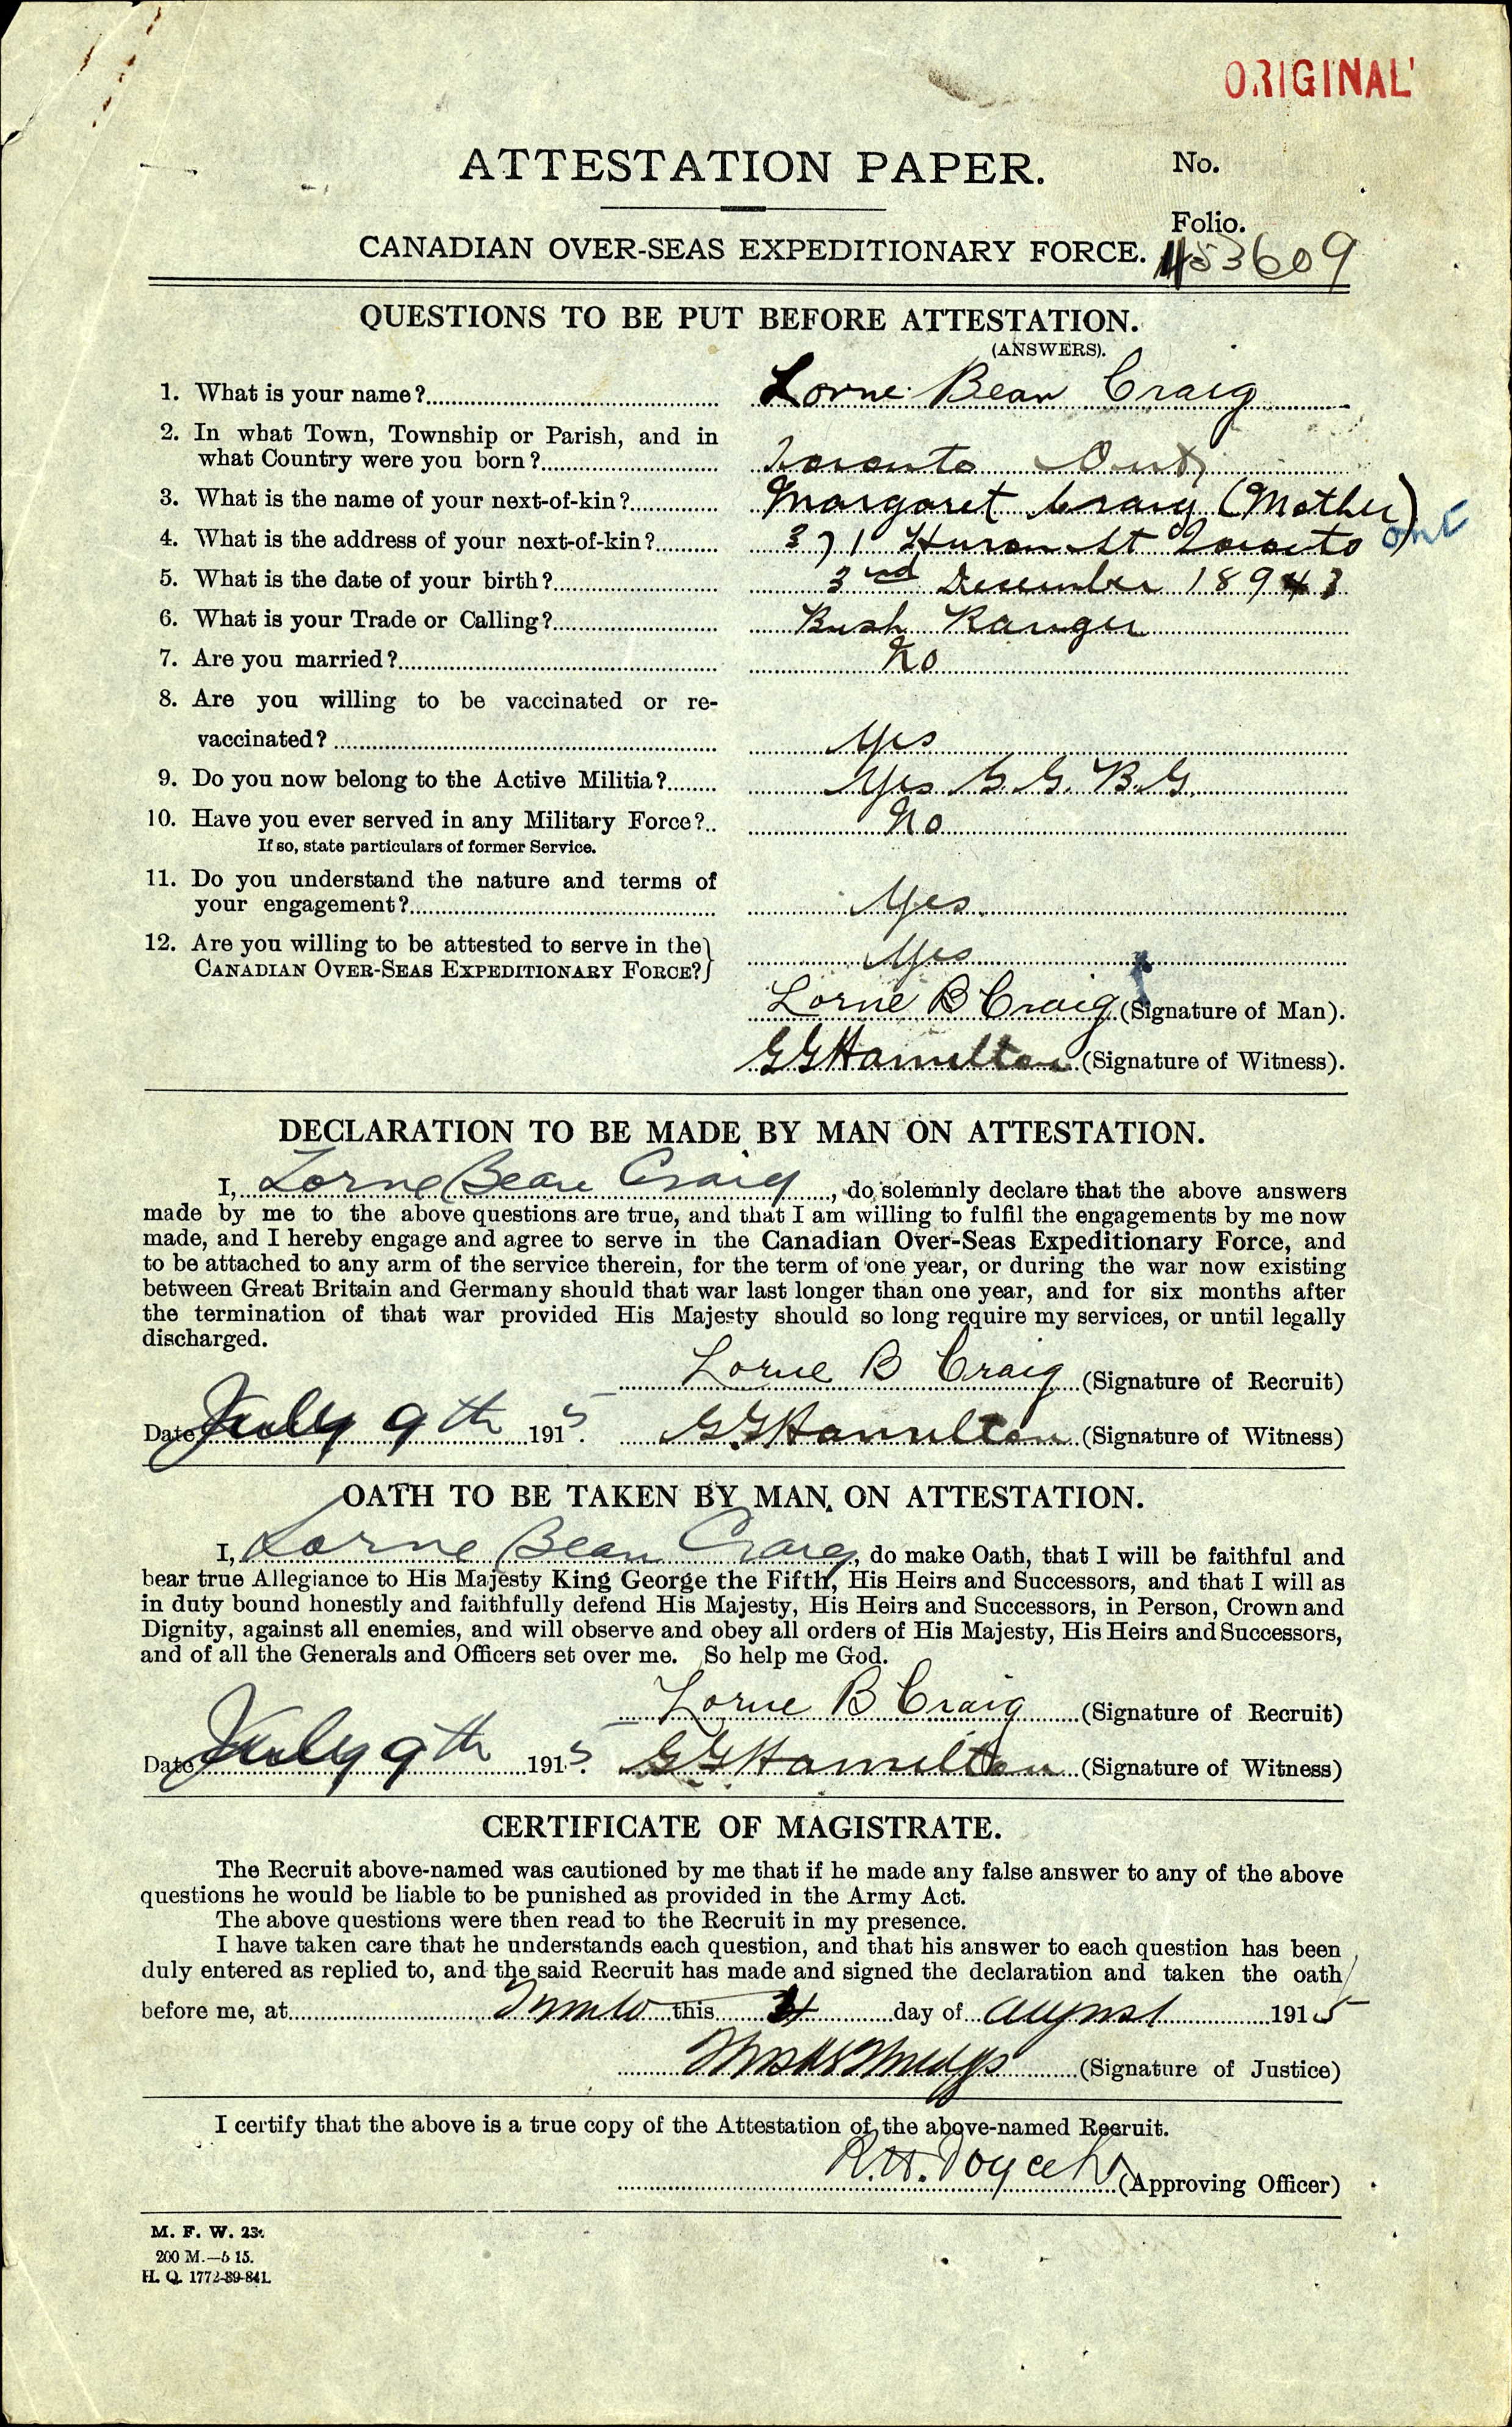 ORIGINAL
ATTESTATION PAPER.
No.
Folio.
CANADIAN OVER-SEAS EXPEDITIONARY FORCE. 453609
QUESTIONS TO BE PUT BEFORE ATTESTATION.
(ANSWERS).
1. What is your name? Lorne Bean Craig
2. In what Town, Township or Parish, and in
what Country were you born? Toronto Ont
3. What is the name of your next-of-kin? Margaret Craig (Mother)
4. What is the address of your next-of-kin? 371 Huron St Toronto Ont
5. What is the date of your birth? 3rd December 1893
6. What is your Trade or Calling? Bush Ranger
7. Are you married? No
8. Are you willing to be vaccinated or re-
vaccinated? Yes
9. Do you now belong to the Active Militia? Yes G.G.B.G.
10. Have you ever served in any Military Force? No
If so, state particulars of former Service.
11. Do you understand the nature and terms of
your engagement? Yes
12. Are you willing to be attested to serve in the
CANADIAN OVER-SEAS EXPEDITIONARY FORCE? Yes
Lorne B Craig (Signature of Man).
GG Hamilton (Signature of Witness).
DECLARATION TO BE MADE BY MAN ON ATTESTATION.
I, Lorne Bean Craig, do solemnly declare that the above answers
made by me to the above questions are true, and that I am willing to fulfil the engagements by me now
made, and I hereby engage and agree to serve in the Canadian Over-Seas Expeditionary Force, and
to be attached to any arm of the service therein, for the term of one year, or during the war now existing
between Great Britain and Germany should that war last longer than one year, and for six months after
the termination of that war provided His Majesty should so long require my services, or until legally
discharged.
Lorne B Craig (Signature of Recruit)
Date July 9th 1915. GG Hamilton (Signature of Witness)
OATH TO BE TAKEN BY MAN ON ATTESTATION.
I, Lorne Bean Craig, do make Oath, that I will be faithful and
bear true Allegiance to His Majesty King George the Fifth, His Heirs and Successors, and that I will as
in duty bound honestly and faithfully defend His Majesty, His Heirs and Successors, in Person, Crown and
Dignity, against all enemies, and will observe and obey all orders of His Majesty, His Heirs and Successors,
and of all the Generals and Officers set over me. So help me God.
Lorne B Craig (Signature of Recruit)
Date July 9th 1915. GG Hamilton (Signature of Witness)
CERTIFICATE OF MAGISTRATE.
The Recruit above-named was cautioned by me that if he made any false answer to any of the above
questions he would be liable to be punished as provided in the Army Act.
The above questions were then read to the Recruit in my presence.
I have taken care that he understands each question, and that his answer to each question has been
duly entered as replied to, and the said Recruit has made and signed the declaration and taken the oath
before me, at Toronto this day of August 1915
(Signature of Justice)
I certify that the above is a true copy of the Attestation of the above-named Recruit.
(Approving Officer)
M. F. W. 23.
200 M.—5 15.
H. Q. 1772-39-841.